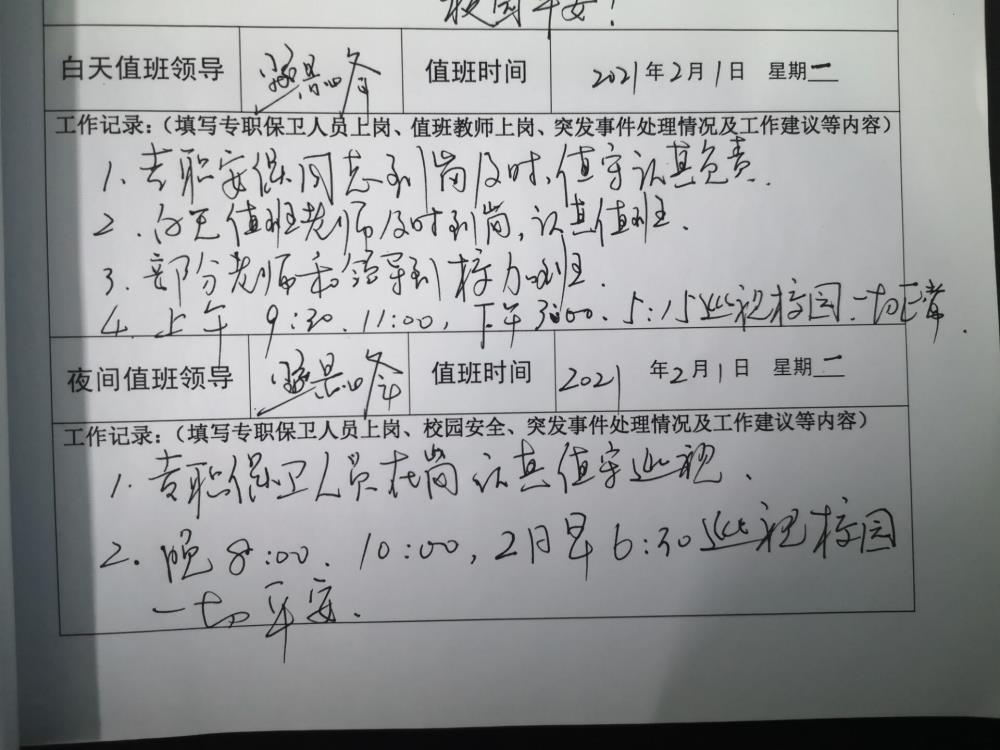 校园平安！
白天值班领导 值班时间 2021年2月1日 星期一
工作记录：（填写专职保卫人员上岗、值班教师上岗、突发事件处理情况及工作建议等内容）
1. 专职安保同志到岗及时，值守认真负责.
2. 白天值班老师及时到岗，认真值班.
3. 部分老师和领导到校加班.
4. 上午 9:30. 11:00, 下午3:00. 5:15巡视校园.一切正常.
夜间值班领导 值班时间 2021年2月1日 星期一
工作记录：（填写专职保卫人员上岗、校园安全、突发事件处理情况及工作建议等内容）
1. 专职保卫人员在岗认真值守巡视.
2. 晚8:00. 10:00, 2日早6:30巡视校园
一切平安.